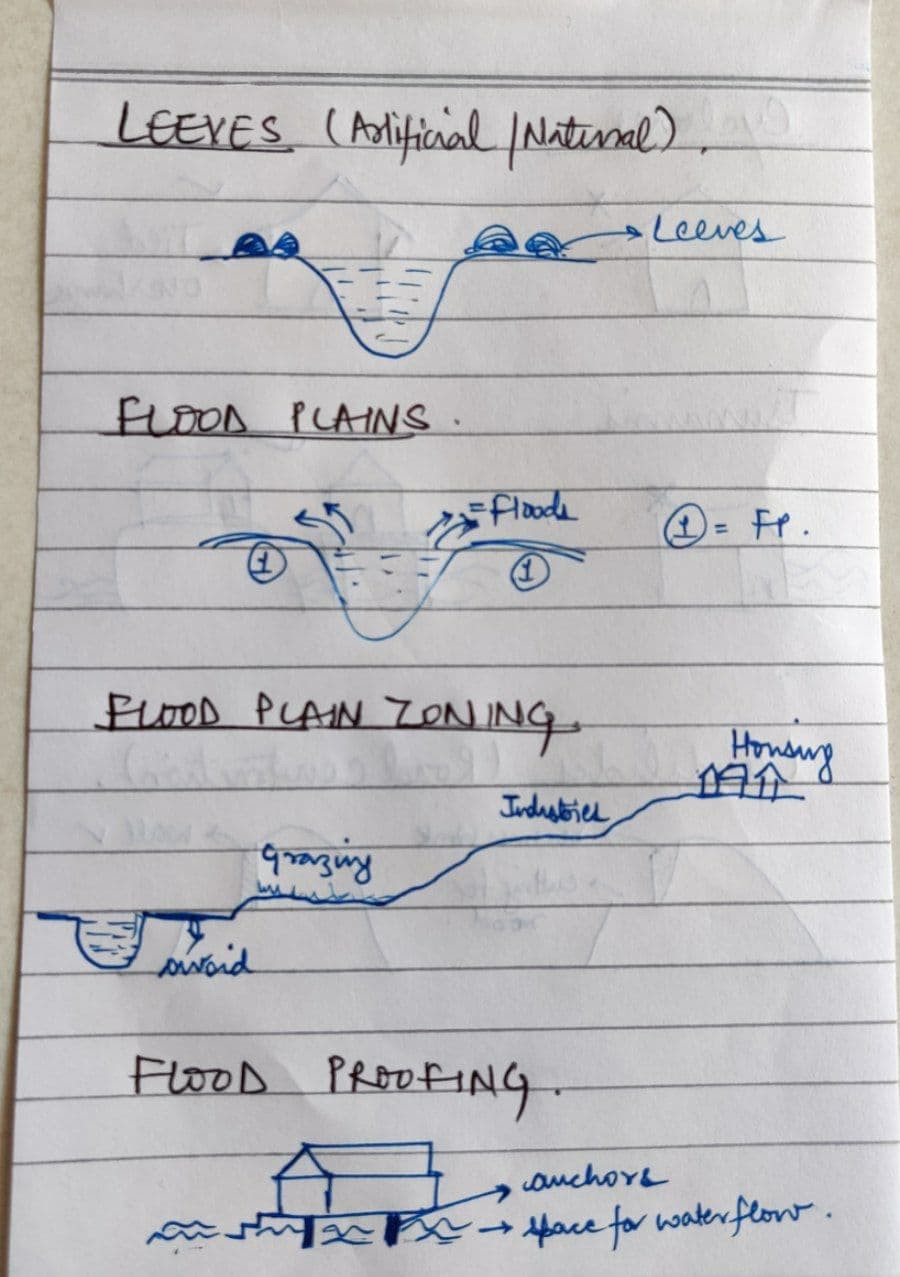 LEEVES (Artificial / Natural).
Leeves
FLOOD PLAINS.
= Floods
① = FP.
① ①
FLOOD PLAIN ZONING.
Housing
Industries
grazing
avoid
FLOOD PROOFING.
anchors
space for water flow.